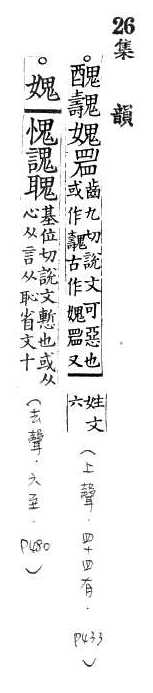 26
集韻
。醜魗媿 齒九切說文可惡也
或作魗古作媿 又
姓文
六
(上聲．四十四有．P433)
。媿愧謉聭 基位切說文慙也或从
心从言从恥省文十
(去聲．六至．P480)